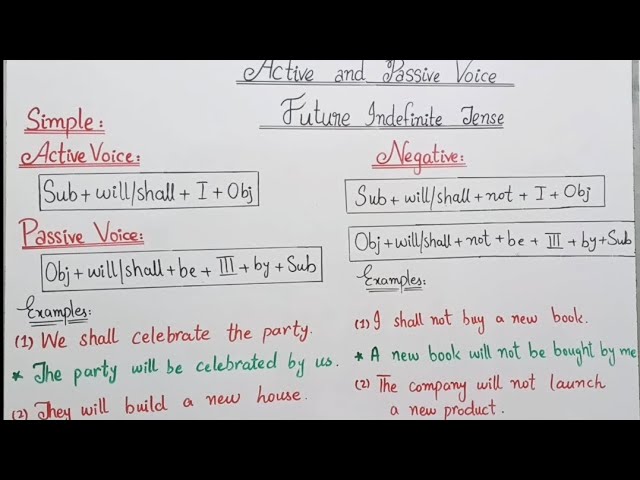 Active and Passive Voice
Future Indefinite Tense
Simple:
Active Voice:
Sub + will/shall + I + Obj
Passive Voice:
Obj + will/shall + be + III + by + Sub
Examples:
(1) We shall celebrate the party.
* The party will be celebrated by us.
(2) They will build a new house.
Negative:
Sub + will/shall + not + I + Obj
Obj + will/shall + not + be + III + by + Sub
Examples:
(1) I shall not buy a new book.
* A new book will not be bought by me
(2) The company will not launch
a new product.